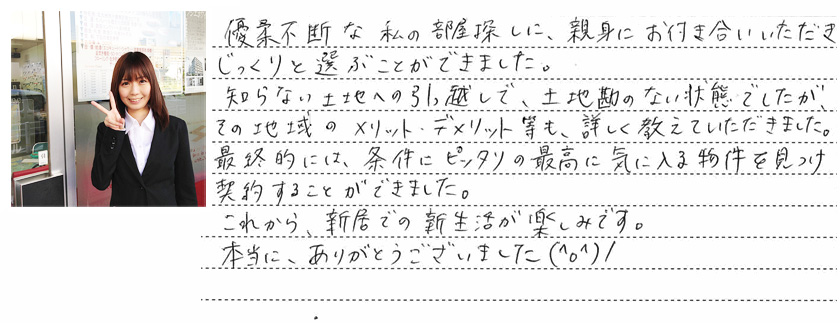 優柔不断な私の部屋探しに、親身にお付き合いいただき
じっくりと選ぶことができました。
知らない土地への引っ越しで、土地勘のない状態でしたが、
その地域のメリット・デメリット等も、詳しく教えていただきました。
最終的には、条件にピッタリの最高に気に入る物件を見つけ
契約することができました。
これから、新居での新生活が楽しみです。
本当に、ありがとうございました(^o^)/